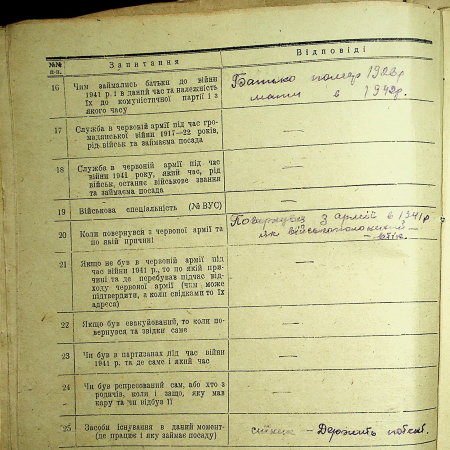 №№ п.п.
Запитання
Відповіді
16
Чим займались батьки до війни
1941 р. і в даний час та належність
їх до комуністичної партії і з
якого часу
Батько помер 1928р
мати в 1942р.
17
Служба в червоній армії під час гро-
мадянської війни 1917—22 років,
рід військ та займаєма посада
—
18
Служба в червоній армії під час
війни 1941 року, який час, рід
військ, останнє військове звання
та займаєма посада
—
19
Військова спеціальність (№ ВУС)
—
20
Коли повернувся з червоної армії та
по якій причині
Повернувся з армії в 1941р
як військовополонений —
втік.
21
Якщо не був в червоній армії під
час війни 1941 р., то по якій при-
чині та де перебував підчас від-
ходу червоної армії (чим може
підтвердити, а коли свідками то їх
адреса)
—
22
Якщо був евакуйований, то коли по-
вернувся та звідки саме
—
23
Чи був в партизанах під час війни
1941 р. та де саме і який час
—
24
Чи був репресований сам, або хто з
родичів, коли і защо, яку мав
кару та чи відбув її
—
25
Засоби існування в даний момент-
(де працює і яку займає посаду)